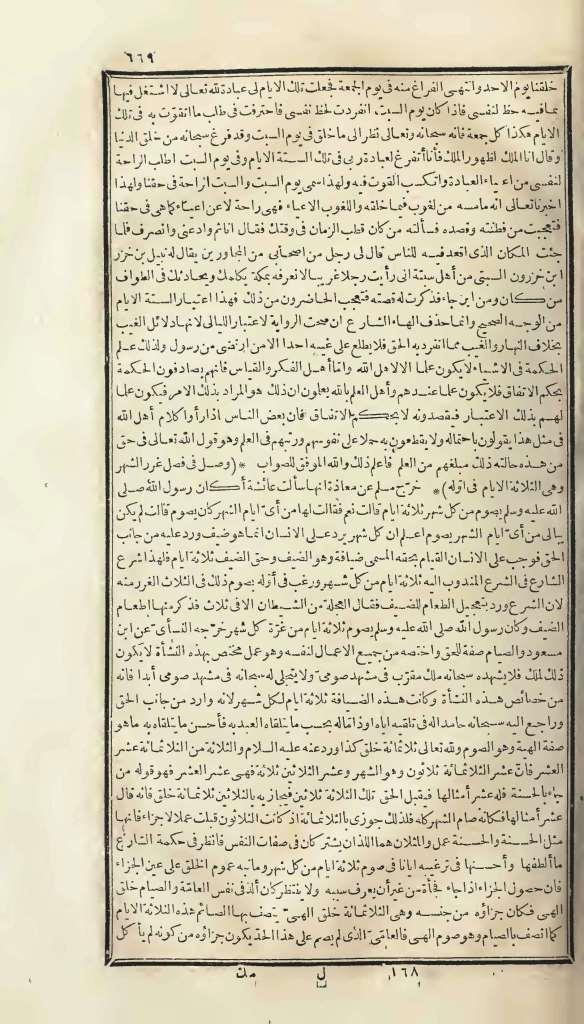 ٦٦٩
خلقنا يوم الاحد وانتهى الفراغ منه فى يوم الجمعة فجعلت تلك الايام لى عبادة لله تعالى لا اشتغل فيها
بما فيه حظ لنفسى فاذا كان يوم السبت انفردت لحظ نفسى فاحترفت فى طلب ما اتقوت به فى تلك
الايام هكذا كل جمعة فانه سبحانه وتعالى نظر الى ما خلق فى يوم السبت وقد فرغ سبحانه من خلق الدنيا
وقال انا الملك لظهور الملك فأنا أتفرغ لعبادة ربى فى تلك الستة الايام وفى يوم السبت اطلب الراحة
لنفسى من اعياء العبادة واتكسب القوت فيه ولهذا سمى يوم السبت والسبت الراحة فى حقنا ولهذا
اخبرنا تعالى انه ما مسه من لغوب فيما خلقه واللغوب الاعياء فهى راحة لا عن اعياء كما هى فى حقنا
فتعجبت من فطنته وقصده فسألته من كان قطب الزمان فى وقتك فقال انا ثم وادعنى وانصرف فلما
جئت المكان الذى اقعد فيه للناس قال لى رجل من اصحابى من المجاورين يقال له نبيل بن خزر
ابن خزرون السبتى من أهل سبتة انى رأيت رجلا غريبا لا نعرفه بمكة يكلمك ويحادثك فى الطواف
من كان ومن اين جاء فذكرت له قصته فتعجب الحاضرون من ذلك فهذا اعتبار الستة الايام
من الوجه الصحيح وانما حذف الهاء الشارع ان صحت الرواية لاعتبار الليالى لانها دلائل الغيب
بخلاف النهار والغيب مما انفرد به الحق فلا يطلع على غيبه احدا الا من ارتضى من رسول ولذلك علم
الحكمة فى الاشياء لا يكون علما الا لاهل الله واما أهل الفكر والقياس فانهم يصادفون الحكمة
بحكم الاتفاق فلا يكون علما عندهم وأهل العلم بالله يعلمون ان ذلك هو المراد بذلك الامر فيكون علما
لهم بذلك الاعتبار فيقصدونه لا بحكم الاتفاق فان بعض الناس اذا رأوا كلام أهل الله
فى مثل هذا يقولون باحتماله ولا يقطعون به حملا على نفوسهم ورتبهم فى العلم وهو قول الله تعالى فى حق
من هذه حالته ذلك مبلغهم من العلم فاعلم ذلك والله الموفق للصواب * (وصل فى فصل غرر الشهر
وهى الثلاثة الايام فى اوله) * خرج مسلم عن معاذة انها سألت عائشة أكان رسول الله صلى
الله عليه وسلم يصوم من كل شهر ثلاثة ايام قالت نعم فقالت لها من أى ايام الشهر كان يصوم قالت لم يكن
يبالى من أى ايام الشهر يصوم اعلم ان كل شهر يرد على الانسان انما هو ضيف ورد عليه من جانب
الحق فوجب على الانسان القيام بحقه المسمى ضيافة وهو الضيف وحق الضيف ثلاثة ايام فلهذا شرع
الشارع فى الشرع المندوب اليه ثلاثة ايام من كل شهر ورغب فى أوله بصوم ذلك فى الثلاث الغرر منه
لان الشرع ورد بتعجيل الطعام للضيف فقال العجلة من الشيطان الا فى ثلاث فذكر منها اطعام
الضيف وكان رسول الله صلى الله عليه وسلم يصوم ثلاثة ايام من غرة كل شهر خرجه النسأى عن ابن
مسعود والصيام صفة للحق واختصه من جميع الاعمال لنفسه وهو عمل مختص بهذه النشأة لا يكون
ذلك لملك فلا يشهده سبحانه ملك مقرب فى مشهد صومى ولا يتجلى له سبحانه فى مشهد صومى أبدا فانه
من خصائص هذه النشأة وكانت هذه الضيافة ثلاثة ايام لكل شهر لانه وارد من جانب الحق
وراجع اليه سبحانه حامدا له فى تلقيه اياه اوذاما له بحسب ما يتلقاه العبد به فأحسن ما يتلقاه به ما هو
صفة الهية وهو الصوم ولله تعالى ثلثمائة خلق كذا ورد عنه عليه السلام والثلاثة من الثلاثمائة عشر
العشر فان عشر الثلاثمائة ثلاثون وهو الشهر وعشر الثلاثين ثلاثة فهى عشر العشر فهو قوله من
جاء بالحسنة فله عشر أمثالها فيقبل الحق تلك الثلاثة ثلاثين فيجازيه بالثلاثين ثلاثمائة خلق فانه قال
عشر أمثالها فكانه صام الشهر كله فلذلك جوزى بالثلاثمائة اذ كانت الثلاثون قبلت عملا لا جزاء فانها
مثل الحسنة والحسنة عمل والمثلان هما اللذان يشتركان فى صفات النفس فانظر فى حكمة الشارع
ما ألطفها وأحسنها فى ترغيبه ايانا فى صوم ثلاثة ايام من كل شهر وما نبه عموم الخلق على عين الجزاء
فان حصول الجزاء اذا جاء فجأة من غير أن يعرف سببه ولا ينتظر كان ألذ فى نفس العامة والصيام خلق
الهى فكان جزاؤه من جنسه وهى الثلاثمائة خلق الهى يتصف بها الصائم هذه الثلاثة الايام
كما اتصف بالصيام وهو صوم الهى فالعامى الذى لم يصم على هذا الحد يكون جزاؤه من كونه لم يأكل
١٦٨ ل مك